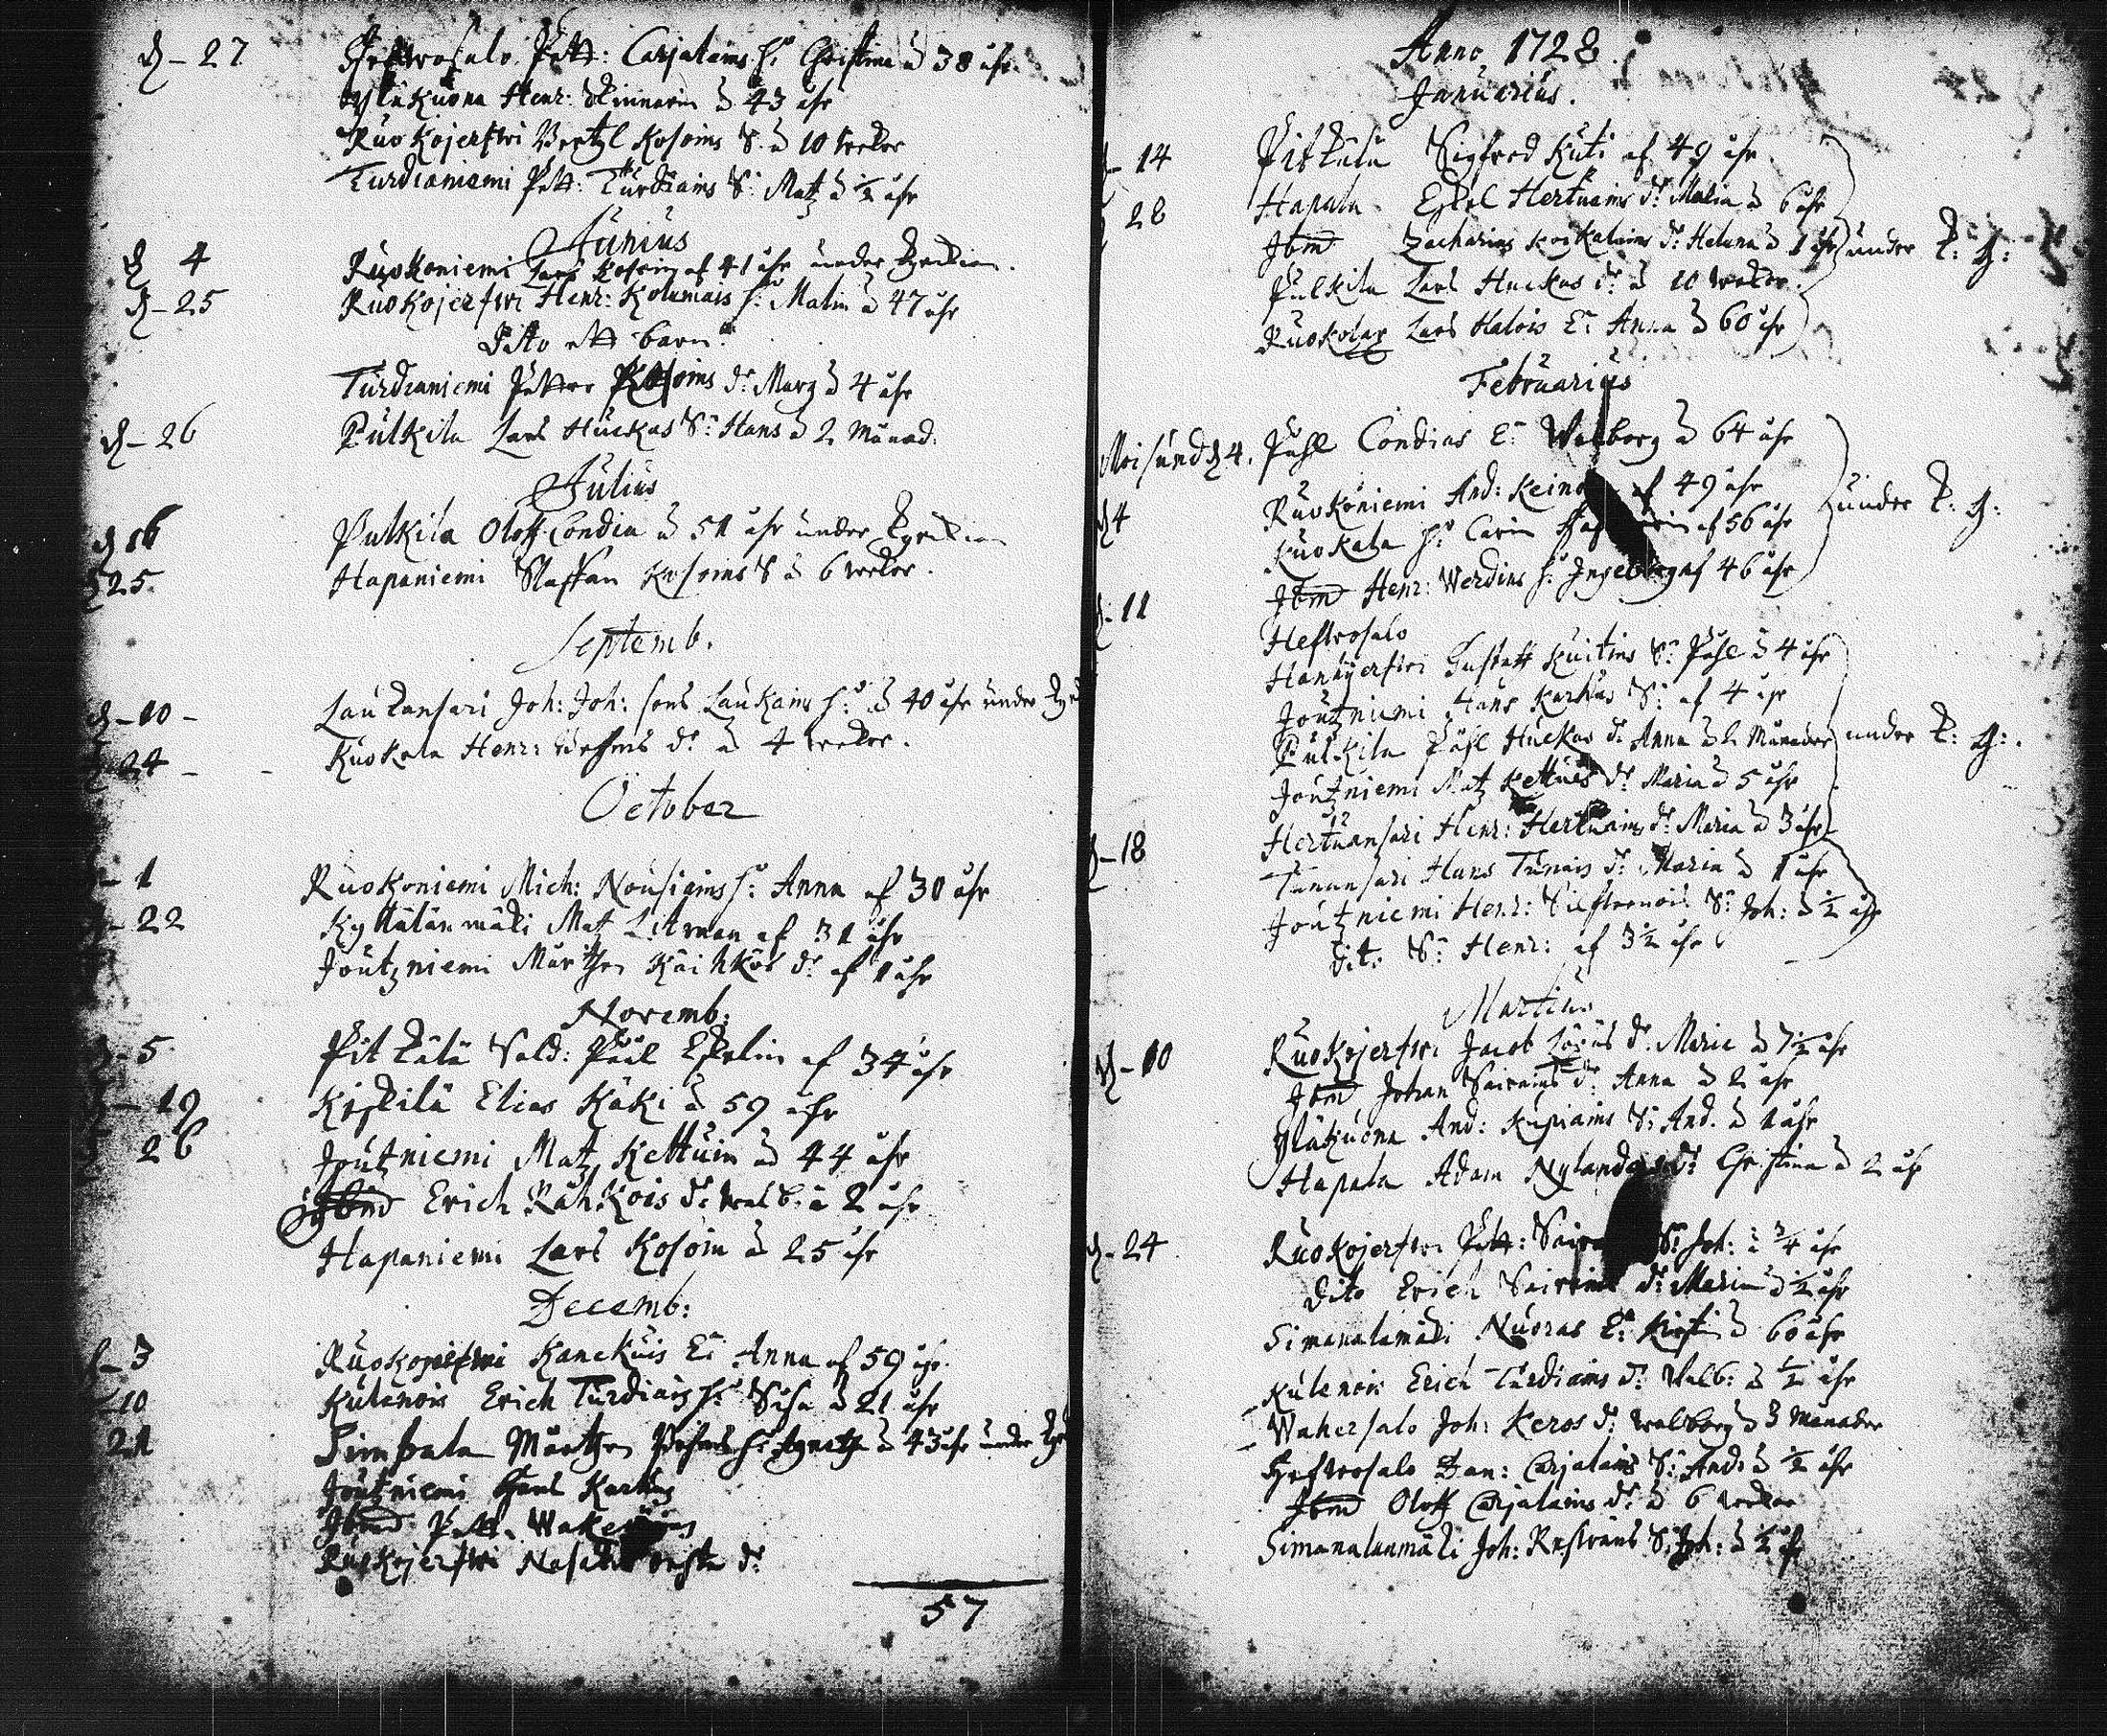 d - 27 Heftrosalo Pett: Carjalains h: Christina à 38 åhr
Yläkuona Henr: Kinnarin à 43 åhr
Ruokojerfwi Bertil Kosoins S. à 10 wekor
Turdianiemi Pett: Turdiains S: Matz à ½ åhr
Junius
d 4 Ruokoniemi Lars Kosoin af 41 åhr under kyrkian.
d - 25 Ruokojerfwi Henr: Kolumais h: Malin à 47 åhr
Dito ett barn
Turdianiemi Petter Kosoins dr Marg à 4 åhr
d - 26 Pulkila Lars Huckas S: Hans à 2 Månad:
Julius
d 16 Pulkila Oloff Condia à 51 åhr under kyrkian
25. Hapaniemi Staffan Kosoins S à 6 wekor.
Septemb.
d - 10 - Laukansari Joh: Joh: sons Laukains h: à 40 åhr under
24 - Kuokala Henr: dr à 4 wekor.
October
- 1 Ruokoniemi Mich: Nousiains h: Anna af 30 åhr
- 22 Kyttälänmäki Matz Litman af 31 åhr
Joutzniemi Mårthen Käihkös dr af 1 åhr
Novemb:
- 5 Pitkälä Sold: Påul Eskelin af 34 åhr
- 19 Kiskilä Elias Käki à 59 åhr
26 Joutzniemi Matz Kettuin à 44 åhr
Ibm Erich Rähkois dr Walb: à 2 åhr
Hapaniemi Lars Kosoin à 25 åhr
Decemb:
- 3 Ruokojerfwi Kanckuis E: Anna af 59 åhr.
- 10 Kulenois Erich Turdiais h: à 21 åhr
21 Simpala Mårthen h: Agnetha à 43 åhr under
Joutzniemi Hans Karhus
Ibm Pett.
Ruokojerfwi dr
57
Anno 1728.
Januarius.
- 14 Pitkälä Sigfred Kuti af 49 åhr
28 Hapala Eskel Hertuains dr Malin à 6 åhr
Ibm Zacharias Koikalains dr Helena à 1 åhr under k: g:
Pulkila Lars Huckas dr à 10 wekor.
Ruokolax Lars Halois E: Anna à 60 åhr
Februarius
Moisund d 4. Påhl Condias E: Walborg à 64 åhr
d 4 Ruokoniemi And: af 49 åhr under k: g:
Kuokala h: Carin af 56 åhr
Ibm Henr: Werdins h: Ingeborg af 46 åhr
- 11 Heftrosalo
Hankjerfwi Gustaff Kuitins S: Påhl à 4 åhr
Joutzniemi Hans Karhus S: af 4 åhr
Pulkila Påhl Huckas dr Anna à 2 Månader under k: g:.
Joutzniemi Matz Kettuis dr Maria à 5 åhr
Hertuansari Henr: Hertuains dr Maria à 3 åhr
- 18 Tunansari Hans Tunais dr Maria à 1 åhr
Joutzniemi Henr: S: Joh: à ½ åhr
Dito S: Henr: af 3½ åhr
Martius
d - 10 Ruokojerfwi Jacob dr Maria à 7½ åhr
Ibm Johan Sairains dr Anna à 2 åhr
Yläkuona And: Kupiains S: And. à 1 åhr
Hapala Adam dr Christina à 2 åhr
d - 24 Ruokojerfwi Pett: S: Joh: à ¾ åhr
Dito Erich Sairains dr Maria à ½ åhr
Simanalamäki Nuoras E: Kirstin à 60 åhr
Kulenois Erich Turdiains dr Walb: à ½ åhr
Wahersalo Joh: Keros dr Walborg à 3 Månader
Heftrosalo Dan: Carjalains S: And: à ½ åhr
Ibm Oloff Carjalains dr à 6 wekor
Simanalanmäki Joh: S: Joh: à ½ åhr